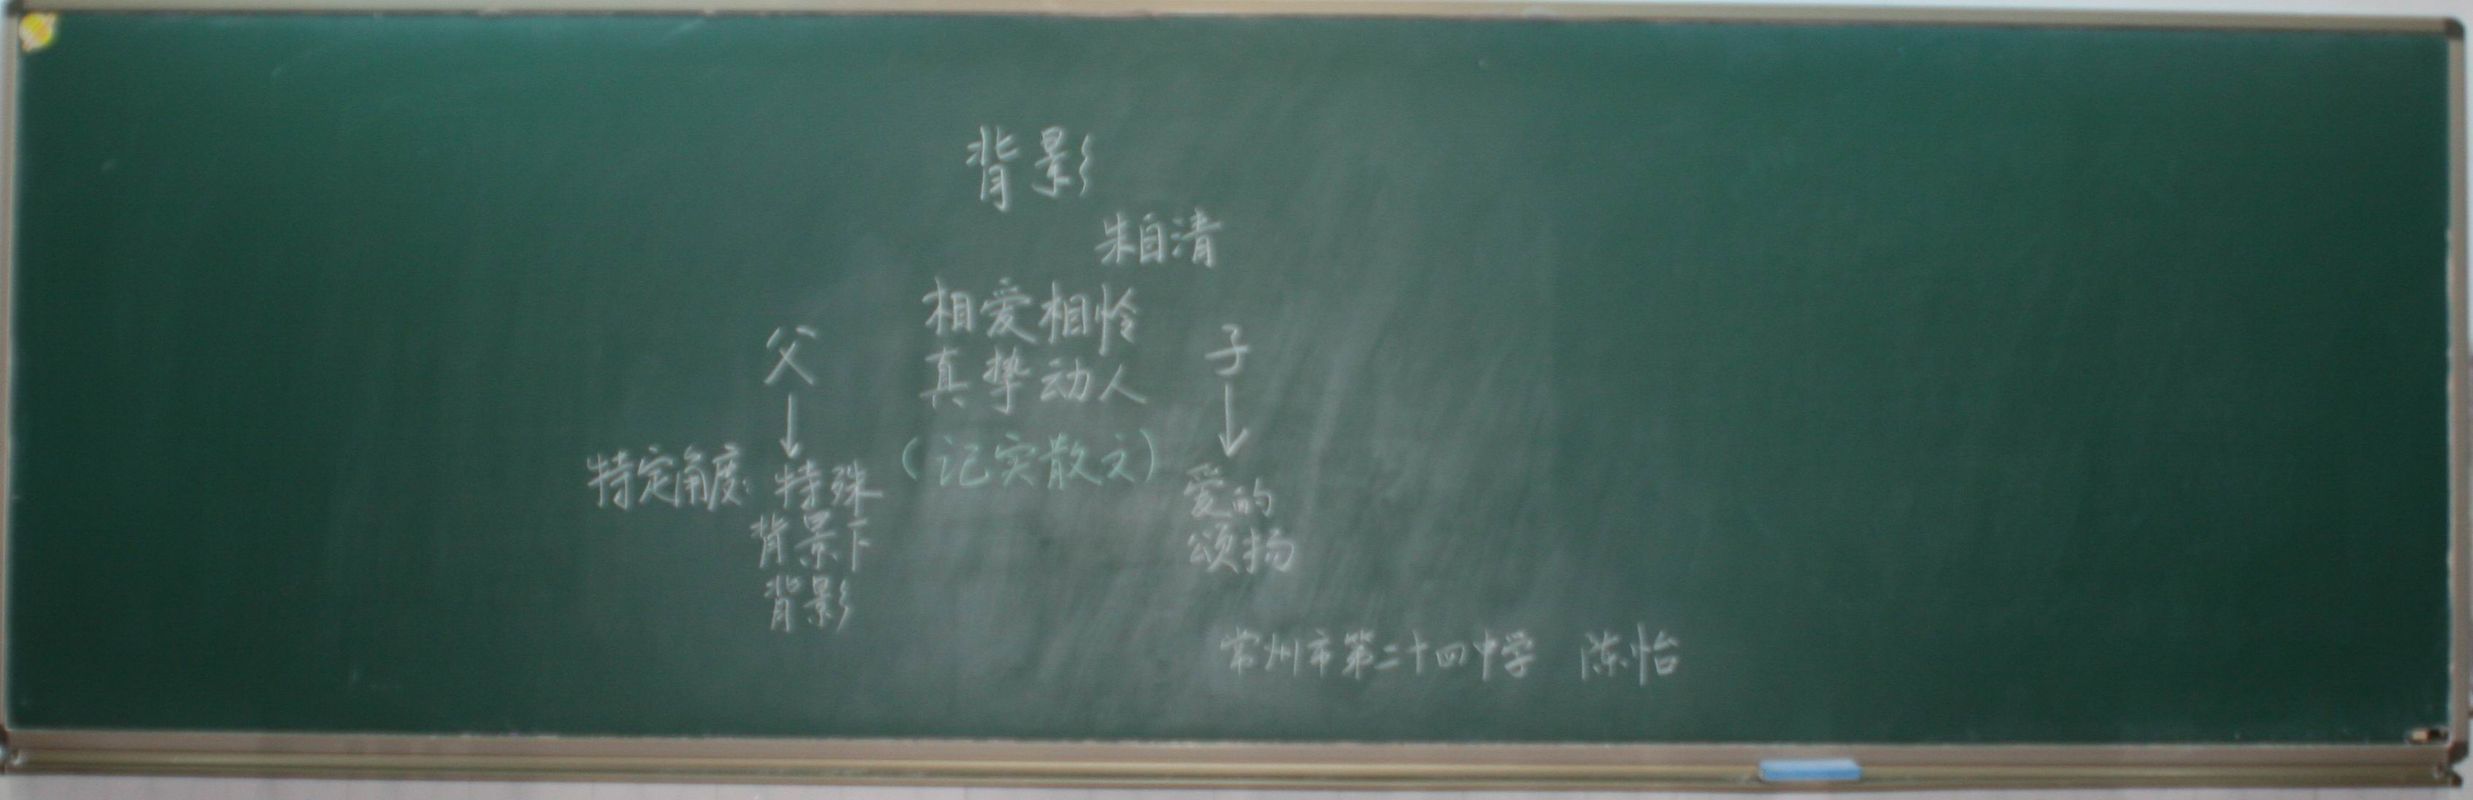 背影
朱自清
相爱相怜
真挚动人
（记实散文）
父
子
特定角度：特殊
背景下
背影
爱的
颂扬
常州市第二十四中学 陈怡